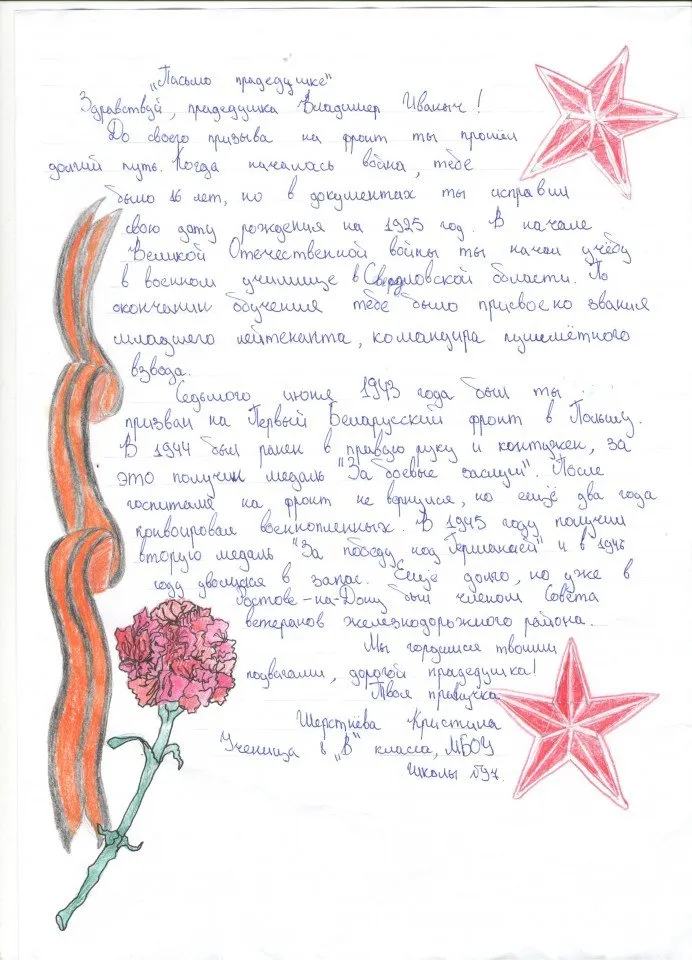 "Письмо прадедушке"
Здравствуй, прадедушка Владимир Иваныч!
До своего призыва на фронт ты прошёл
долгий путь. Когда началась война, тебе
было 16 лет, но в документах ты исправил
свою дату рождения на 1925 год. В начале
Великой Отечественной войны ты начал учёбу
в военном училище в Свердловской области. По
окончании обучения тебе было присвоено звания
младшего лейтенанта, командира пулемётного
взвода.
Седьмого июня 1943 года был ты
призван на Первый Беларусский фронт в Польшу.
В 1944 был ранен в правую руку и контужен, за
это получил медаль "За боевые заслуги". После
госпиталя на фронт не вернулся, но ещё два года
конвоировал военнопленных. В 1945 году получил
вторую медаль "За победу над Германией" и в 1946
году уволился в запас. Ещё долго, но уже в
Ростове-на-Дону был членом Совета
ветеранов железнодорожного района.
Мы гордимся твоими
подвигами, дорогой прадедушка!
Твоя правнучка
Шерстнёва Кристина
Ученица 6 "В" класса, МБОУ
Школы №97.